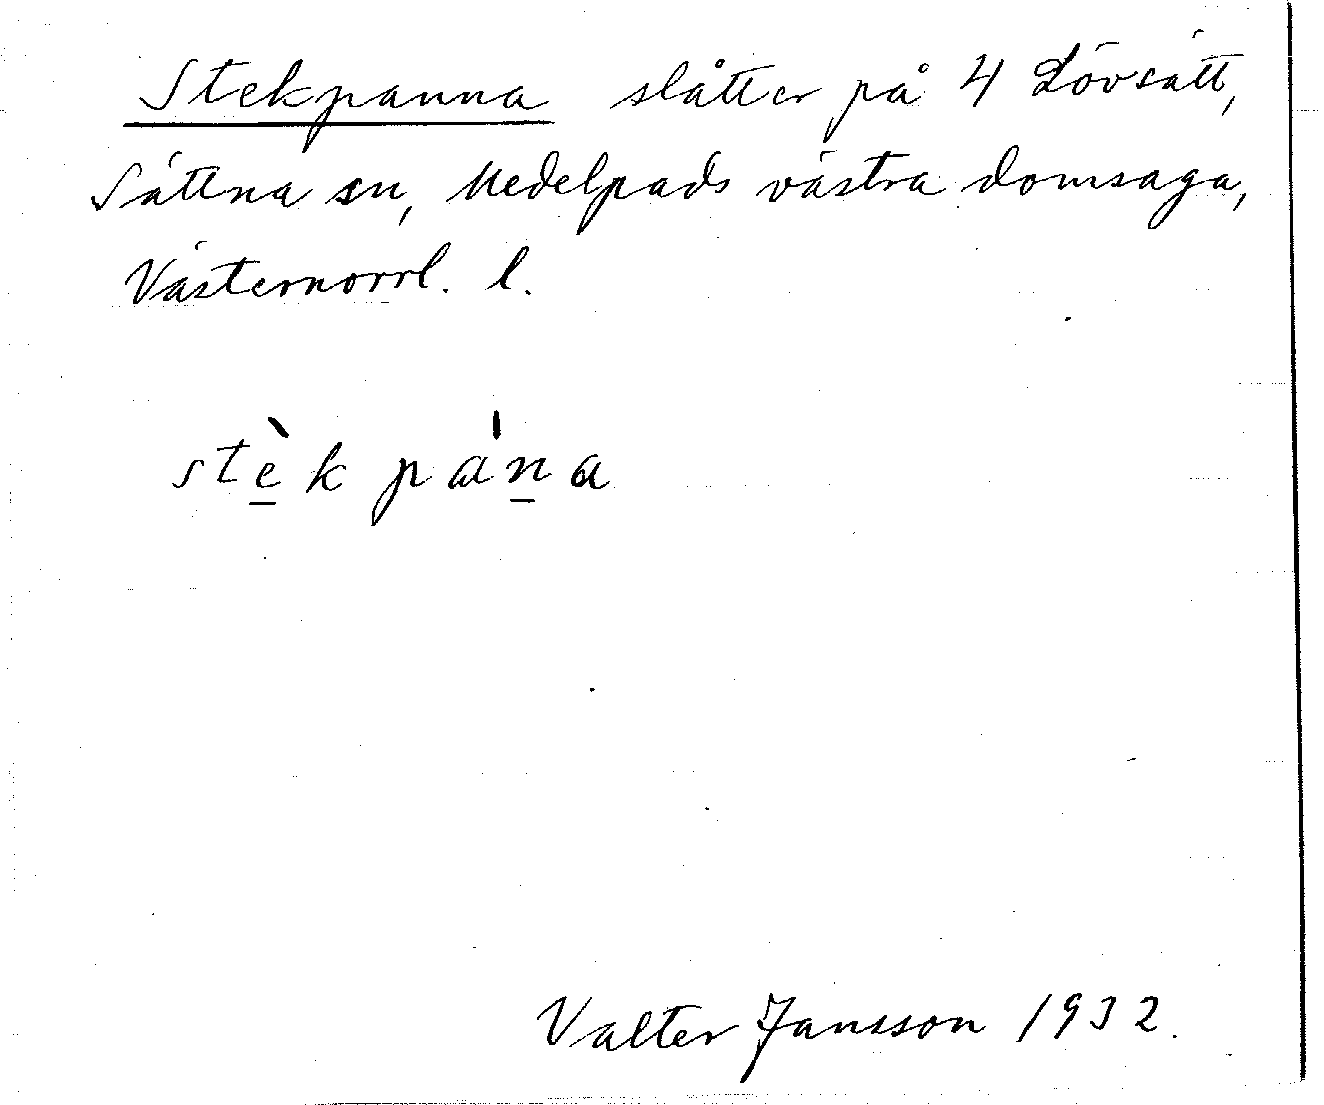 Stekpanna slåtter på 4 Lövsätt,
Sättna sn, Medelpads västra domsaga,
Västernorrl. l.
stèk pána
Valter Jansson 1932.